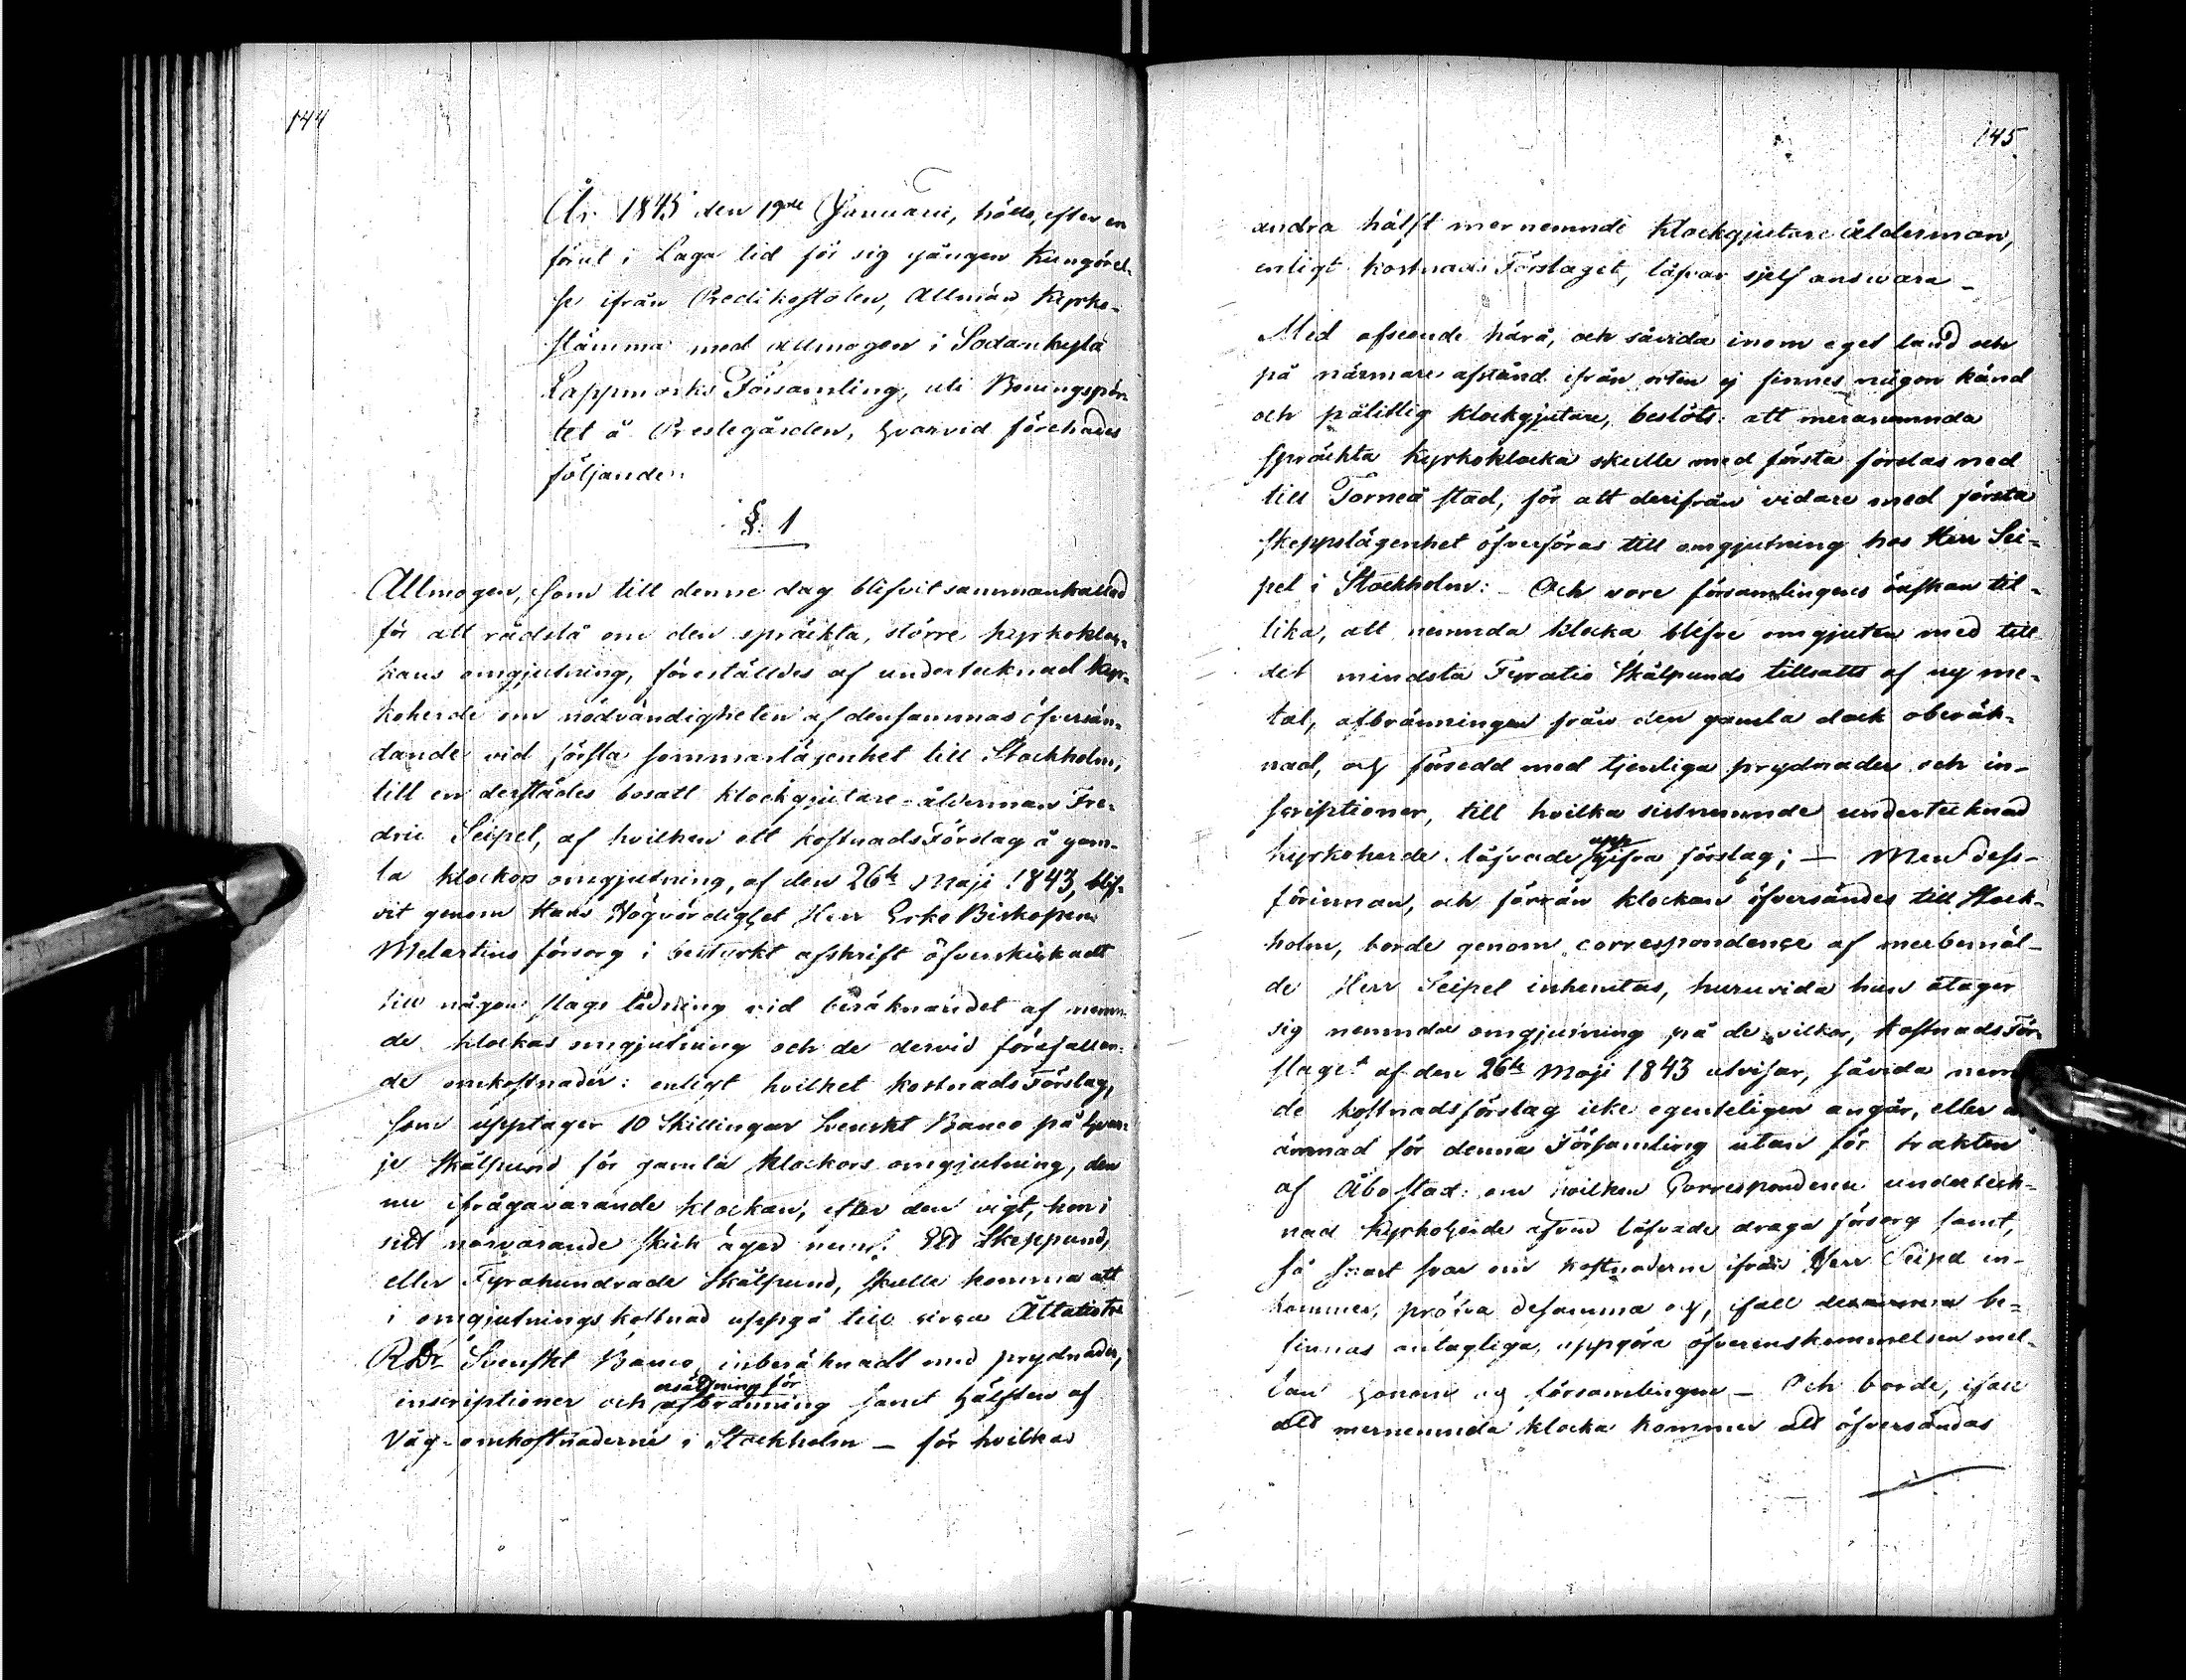 144
År 1845 den 19de Januarii, hölls, efter en
förut i Laga tid för sig gången Kungörel-
se ifrån Predikostolen, Allmän Kyrko-
stämma med allmogen i Sodankylä
Lappmarks Församling, uti Boningspör-
tet å Prestegården, hvarvid förehades
följande:
§. 1
Allmogen, som till denne dag blifvit sammankallad
för att rådslå om den spräckta, större kyrkokloc-
kans omgjutning, föreställdes af undertecknad Kyr-
koherde om nödvändigheten af densammas öfversän-
dande vid första sommarlägenhet till Stockholm,
till en derstädes bosatt klockgjutare-ålderman Fre-
dric Seipel, af hvilken ett kostnadsFörslag å gam-
la klockors omgjutning, af den 26te Maji 1843, blif-
vit genom Hans Högvördighet Herr ErkeBiskopen
Melartins försorg i bestyrkt afskrift öfverskickadt
till någon slags ledning vid beräknandet af nemn-
de klockas omgjutning och de dervid förefallan-
de omkostnader: enligt hvilket kostnadsFörslag,
som upptager 10 Skillingar Svenskt Banco på hvar-
je Skålpund för gamla klockors omgjutning, den
nu ifrågavarande klockan, efter den vigt, hon i
sitt närvarande skick äger neml. Ett Skeppund,
eller Fyrahundrade Skålpund, skulle komma att
i omgjutningskostnad uppgå till circa Åttatio tre
RDr Svenskt Banco, inberäknadt med prydnader,
ersättning för
inscriptioner och afbränning samt hälften af
Våg-omkostnaderne i Stockholm – för hvilkas
145
andra hälft mernemnde Klockgjutare Ålderman,
enligt kostnads Förslaget, låfvar sjelf answara –
Med afseende härå, och såvida inom eget land och
på närmare afstånd ifrån orten ej finnes någon känd
och pålitlig klockgjutare, beslöts: att meranemnda
spräckta Kyrkoklocka skulle med första forslas ned
till Torneå stad, för att derifrån vidare med första
skeppslägenhet öfverföras till omgjutning hos Herr Sei-
pel i Stockholm: – Och vore församlingens önskan til-
lika, att nemnda klocka blifve omgjuten med till
det mindsta Fyratio Skålpunds tillsatts af ny me-
tal, afbränningen från den gamla dock oberäk-
nad, och försedd med tjenliga prydnader och in-
scriptioner, till hvilka sistnemnde undertecknad
upp
kyrkoherde låfvade gifva förslag; – Men dess-
förinnan, och förrän klockan öfversändes till Stock-
holm, borde genom correspondence af merbemäl-
de Herr Seipel inhemtas, huruvida han åtager
sig nemnda omgjutning på de vilkor, kostnadsFör-
slaget af den 26te Maji 1843 utvisar, såvida nemn-
de kostnadsförslag icke egenteligen angår, eller
ämnad för denna Församling utan för trakten
af Åbo stad: om hvilken Correspondence underteck-
nad Kyrkoherde äfven låfvade draga försorg samt,
så snart svar om kostnaderne ifrån Herr Seipel in-
kommer, pröfva desamma och, ifall be-
finnas antagliga, uppgöra öfverenskommelsen mel-
lan honom och församlingen – Och borde, ifall
att mernemnda klocka kommer att öfversändas